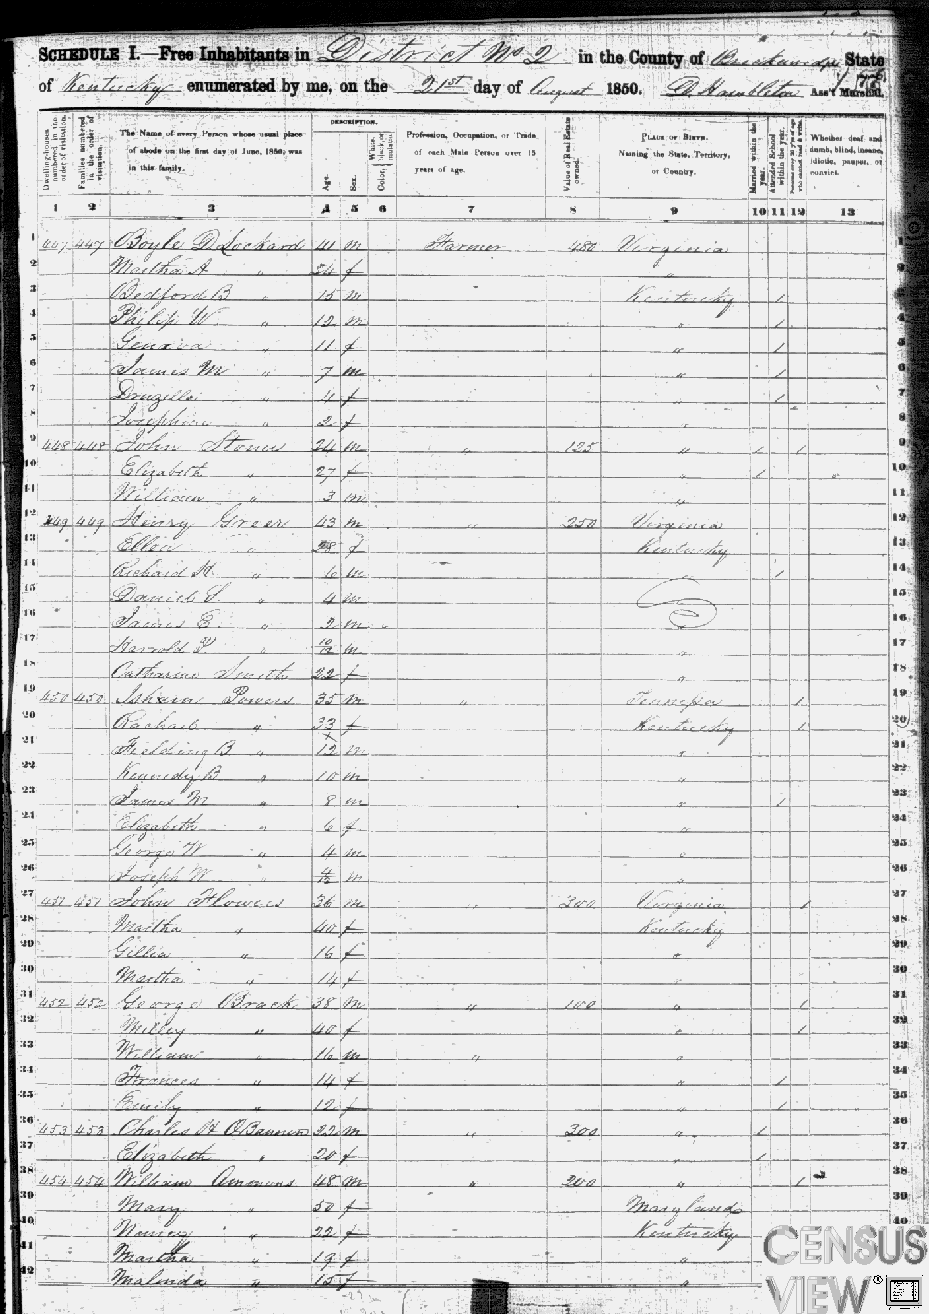 SCHEDULE I.—Free Inhabitants in District No 2 in the County of Breckenridge State
of Kentucky enumerated by me, on the 21st day of August 1850. D. Hambleton Ass't Marshal.
Dwelling-houses numbered in the order of visitation.
Families numbered in the order of visitation.
The Name of every Person whose usual place of abode on the first day of June, 1850, was in this family.
DESCRIPTION.
Age.
Sex.
Color, White, black, or mulatto.
Profession, Occupation, or Trade of each Male Person over 15 years of age.
Value of Real Estate owned.
PLACE OF BIRTH. Naming the State, Territory, or Country.
Married within the year.
Attended School within the year.
Persons over 20 years of age who cannot read & write.
Whether deaf and dumb, blind, insane, idiotic, pauper, or convict.
1 2 3 4 5 6 7 8 9 10 11 12 13
1 447 447 Boyle D Lockard 41 m Farmer 480 Virginia 1
2 Martha A " 34 f " 2
3 Bedford B " 15 m Kentucky 1 3
4 Philip W. " 12 m " 1 4
5 Geneva " 11 f " 1 5
6 James M " 7 m " 1 6
7 Druzilla " 4 f " 1 7
8 Josephine " 2 f " 8
9 448 448 John Stones 24 m " 125 " 1 1 9
10 Elizabeth " 27 f " 1 " 10
11 William " 3 m " 11
12 449 449 Henry Greer 43 m " 250 Virginia 12
13 Ellen " 28 f Kentucky 13
14 Richard H. " 6 m " 1 14
15 Daniel S " 4 m 15
16 James E " 2 m " 16
17 Harrold P " 10/12 m " 17
18 Catharine Smith 22 f " 18
19 450 450 Isham Powers 35 m " Tennessee 1 19
20 Rachael " 33 f Kentucky 1 20
21 Fielding B " 12 m " 21
22 Kennedy B " 10 m " 22
23 James M " 8 m " 1 23
24 Elizabeth " 6 f " 24
25 George W " 4 m " 25
26 Joseph W " 4/12 m " 26
27 451 451 John Flowers 36 m " 200 Virginia 1 27
28 Martha " 40 f Kentucky 28
29 Gillia " 16 f " 29
30 Martha " 14 f " 30
31 452 452 George Brack 38 m " 100 " 1 31
32 Milley " 40 f " 1 32
33 William " 16 m " " 33
34 Frances " 14 f " 1 34
35 Emily " 12 f " 1 35
36 453 453 Charles H OBannon 22 m " 300 " 1 36
37 Elizabeth " 20 f " 1 37
38 454 454 William Ammons 48 m " 200 " 1 38
39 Mary " 50 f Maryland 39
40 Nancy " 22 f Kentucky 40
41 Martha " 19 f "
42 Malinda " 15 f "
CENSUS
VIEW ®